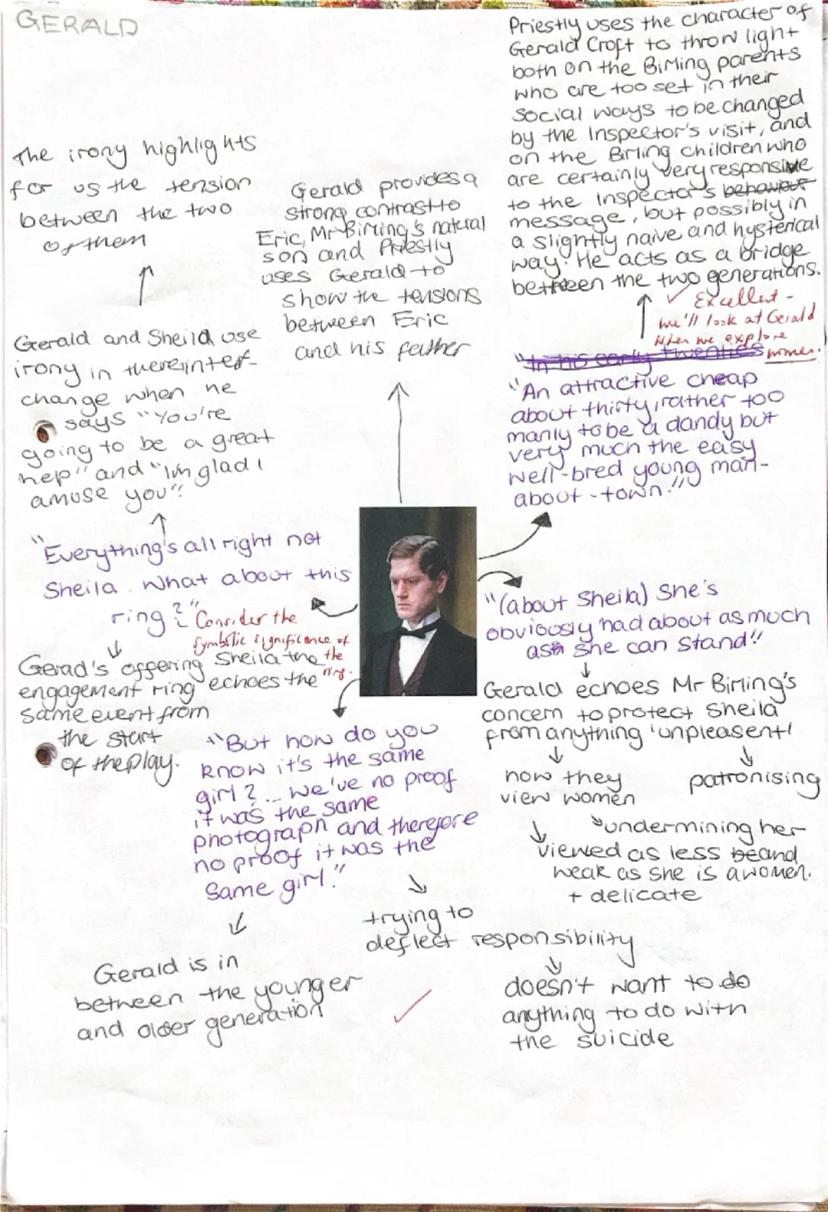 GERALD
Priestly uses the character of
Gerald Croft to throw light
both on the Birling parents
who are too set in their
social ways to be changed
by the Inspector's visit, and
on the Birling children who
are certainly very responsive
to the Inspector's behaviour
message, but possibly in
a slightly naive and hysterical
way. He acts as a bridge
between the two generations.
✓ Excellent -
we'll look at Gerald
when we explore
women.
"In his early twenties
"An attractive cheap
about thirty, rather too
manly to be a dandy but
very much the easy
well-bred young man-
about-town."
The irony highlights
for us the tension
between the two
of them
Gerald and Sheila use
irony in there interf-
change when he
says "You're
going to be a great
help" and "I'm glad I
amuse you".
Gerald provides a
strong contrast to
Eric, Mr Birling's natural
son and Priestly
uses Gerald to
show the tensions
between Eric
and his father
"Everything's all right not
Sheila. What about this
ring?"
Consider the
symbolic significance of
the
ring.
Gerad's offering Sheila the
engagement ring echoes the
same event from
the start
of the play.
"(about Sheila) She's
obviously had about as much
as she can stand"
Gerald echoes Mr Birling's
concern to protect Sheila
from anything 'unpleasent'
how they
view women
patronising
undermining her
viewed as less and
weak as she is a women.
+ delicate
"But how do you
know it's the same
girl? ... we've no proof
it was the same
photograph and therefore
no proof it was the
same girl."
trying to
deflect responsibility
doesn't want to do
anything to do with
the suicide
Gerald is in
between the younger
and older generation
✓